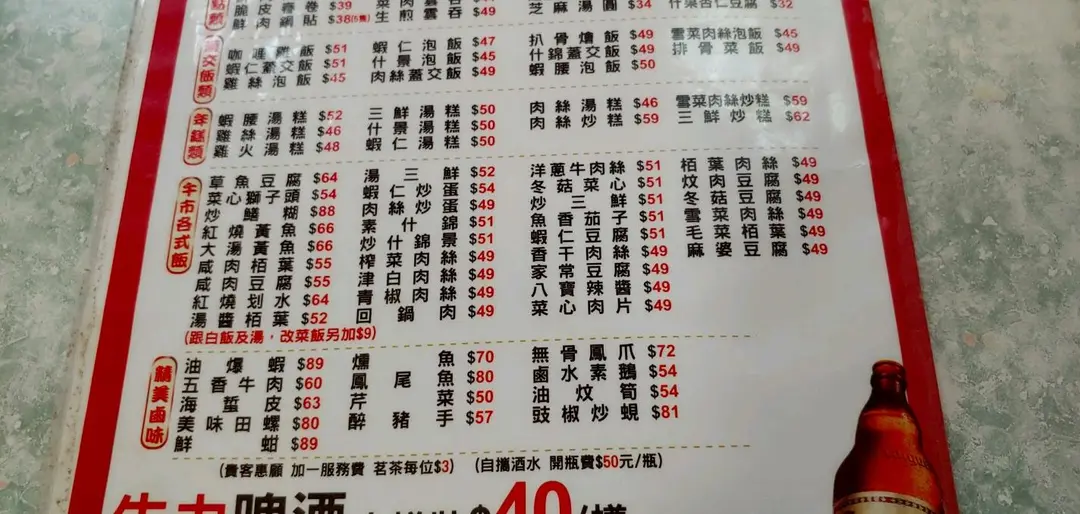 脆皮春卷 $39 芝麻湯圓 $34 $32
鮮肉鍋貼 $38(5隻) 生煎雲吞 $49
咖喱雞飯 $51 蝦仁泡飯 $47 扒骨燴飯 $49 雪菜肉絲泡飯 $45
蝦仁蓋交飯 $51 什景泡飯 $45 什錦蓋交飯 $49 排骨菜飯 $49
雞絲泡飯 $45 肉絲蓋交飯 $49 蝦腰泡飯 $50
年糕類
蝦腰湯糕 $52 三鮮湯糕 $50 肉絲湯糕 $46 雪菜肉絲炒糕 $59
雞絲湯糕 $46 什景湯糕 $50 肉絲炒糕 $59 三鮮炒糕 $62
雞火湯糕 $48 蝦仁湯糕 $50
午市各式飯
草魚豆腐 $64 湯三鮮 $52 洋蔥牛肉絲 $51 栢葉肉絲 $49
菜心獅子頭 $54 蝦仁炒蛋 $54 冬菇菜心 $51 炆肉豆腐 $49
炒鱔糊 $88 肉絲炒蛋 $49 炒三鮮 $51 冬菇豆腐 $49
紅燒黃魚 $66 素什錦 $51 魚香茄子 $51 雪菜肉絲 $49
大湯黃魚 $66 炒什錦景 $51 蝦仁豆腐 $51 毛菜栢葉 $49
咸肉栢葉 $55 榨菜肉絲 $49 香干肉絲 $49 麻婆豆腐 $49
咸肉豆腐 $55 津白肉絲 $49 家常豆腐 $49
紅燒划水 $64 青椒肉絲 $49 八寶辣醬 $49
湯醬栢葉 $52 回鍋肉 $49 菜心肉片 $49
(跟白飯及湯，改菜飯另加$9)
精美鹵味
油爆蝦 $89 燻魚 $70 無骨鳳爪 $72
五香牛肉 $60 鳳尾魚 $80 鹵水素鵝 $54
海蜇皮 $63 芹菜 $50 油炆筍 $54
美味田螺 $80 醉豬手 $57 豉椒炒蜆 $81
鮮蚶 $89
(貴客惠顧 加一服務費 茗茶每位$3) (自攜酒水 開瓶費$50元/瓶)
啤酒 $40